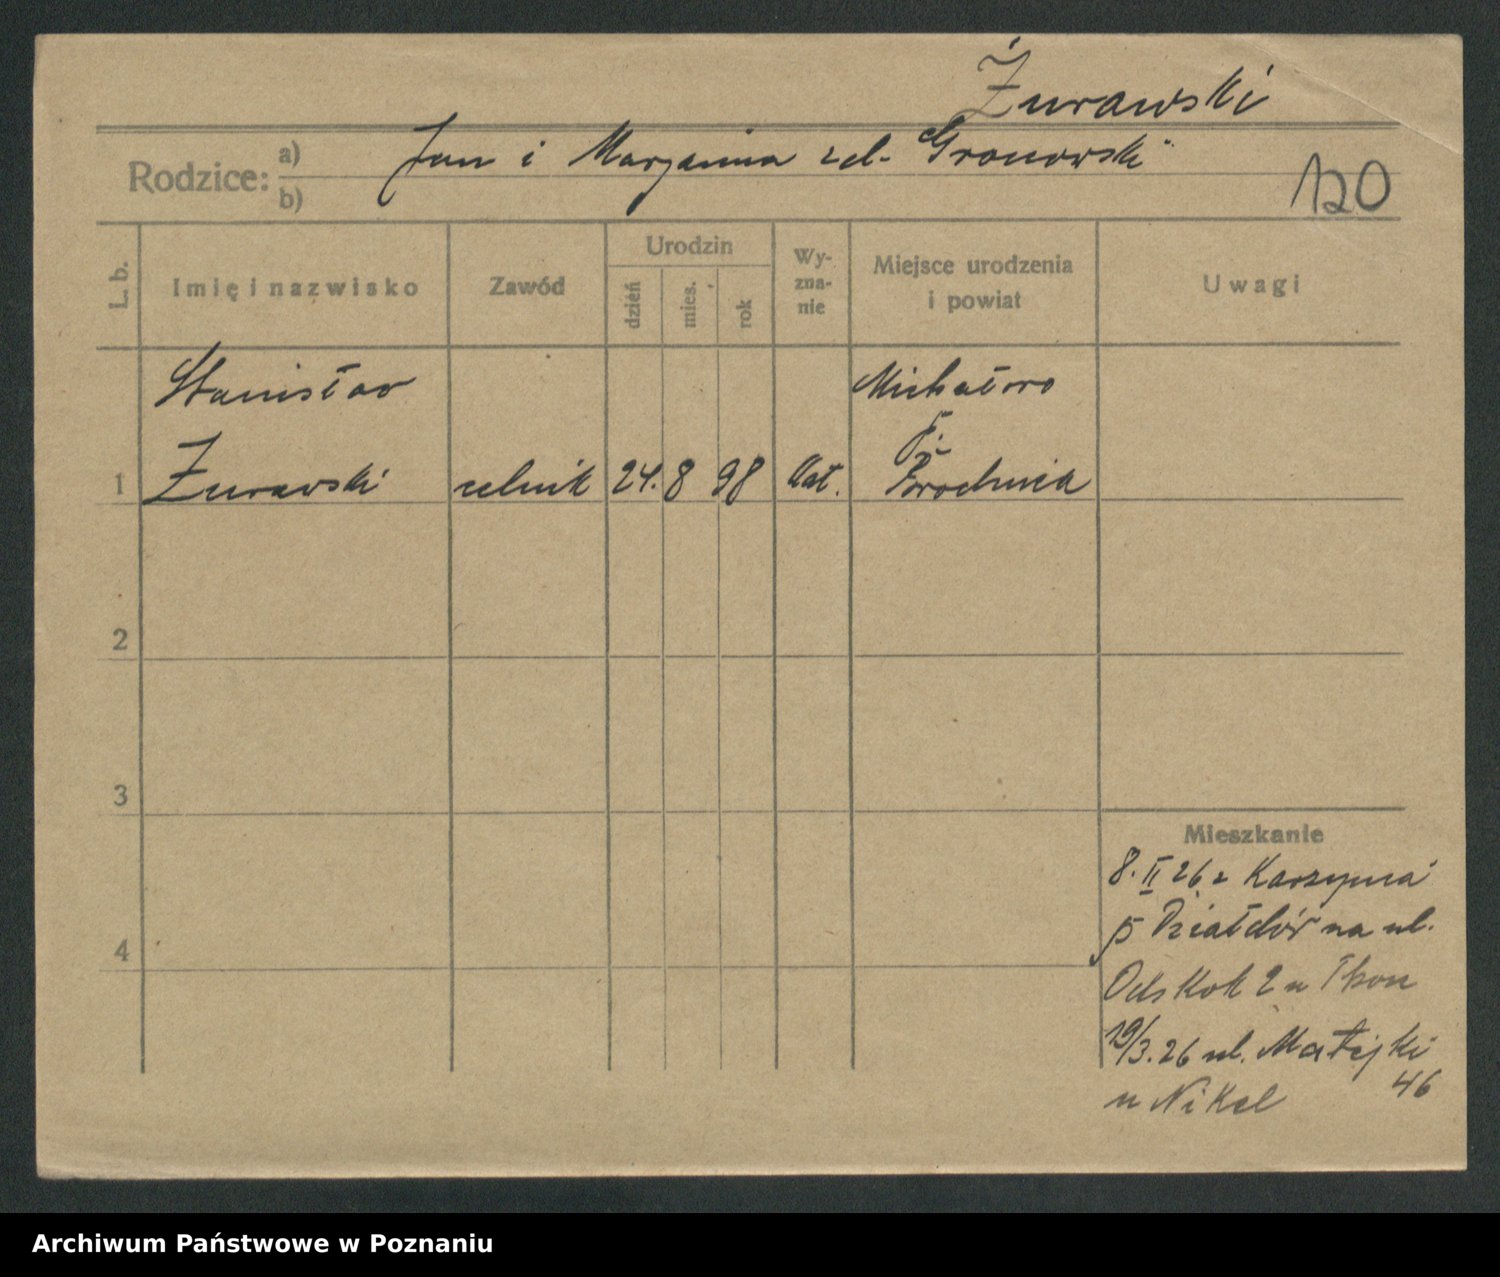 Żurawski
Rodzice: a) b) Jan i Marjanna zd. Gronowski
120
L. b. Imię i nazwisko Zawód Urodzin dzień mies. rok Wy-zna-nie Miejsce urodzenia i powiat Uwagi
Stanisław Michałowo
p.
1 Żurawski rolnik 24. 8 98 kat. Brodnica
2
3
Mieszkanie
8. II 26 z Karzyma
4 p Działdów na ul.
2 u Thon
19/3. 26 ul. Matejki
46
u Nikel
Archiwum Państwowe w Poznaniu